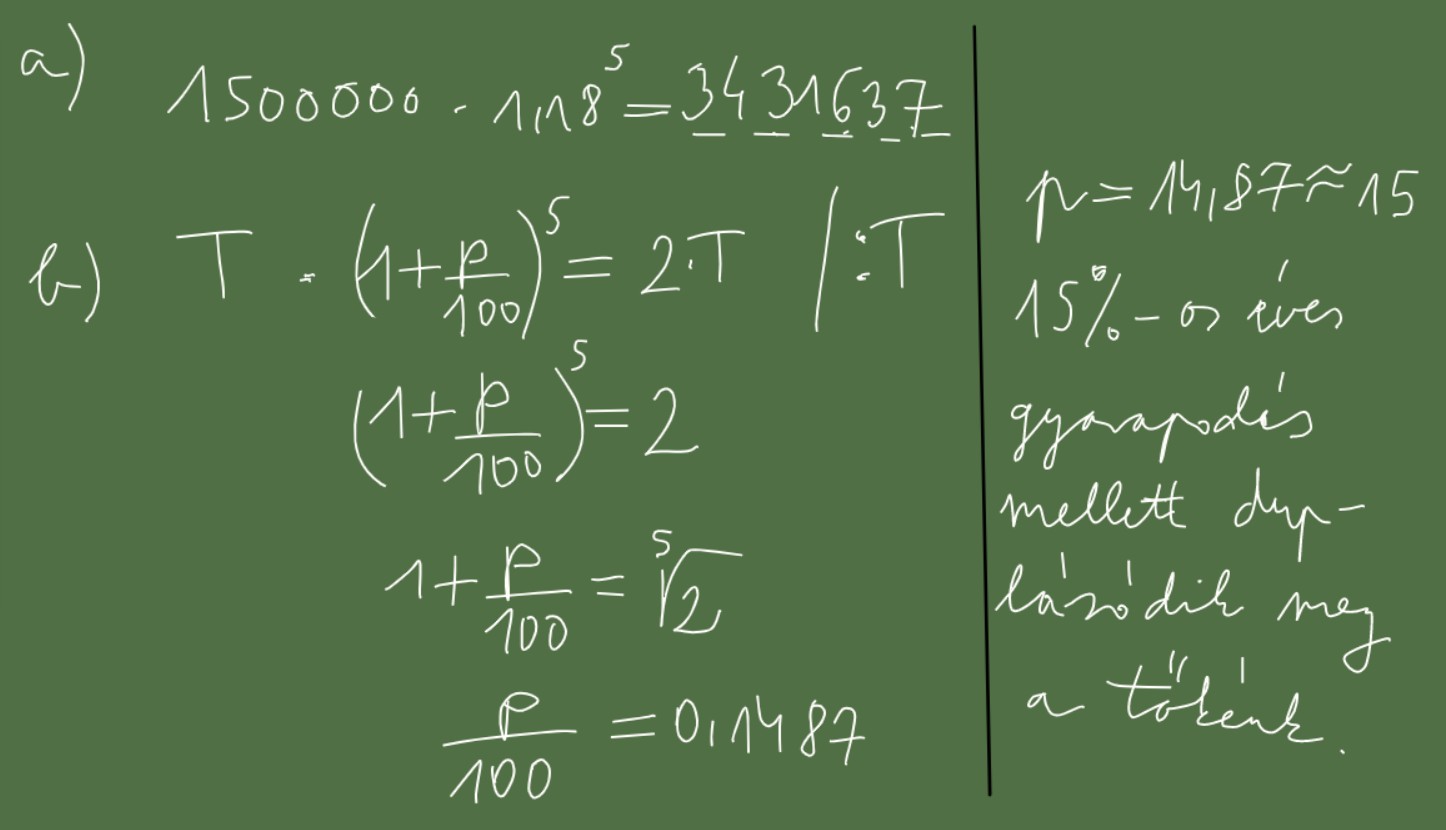 a) 1500000 · 1,18⁵ = 3431637
b) T · (1 + p/100)⁵ = 2·T / :T
(1 + p/100)⁵ = 2
1 + p/100 = ⁵√2
p/100 = 0,1487
p = 14,87 ≈ 15
15%-os éves
gyarapodás
mellett dup-
lázódik meg
a tőkénk.